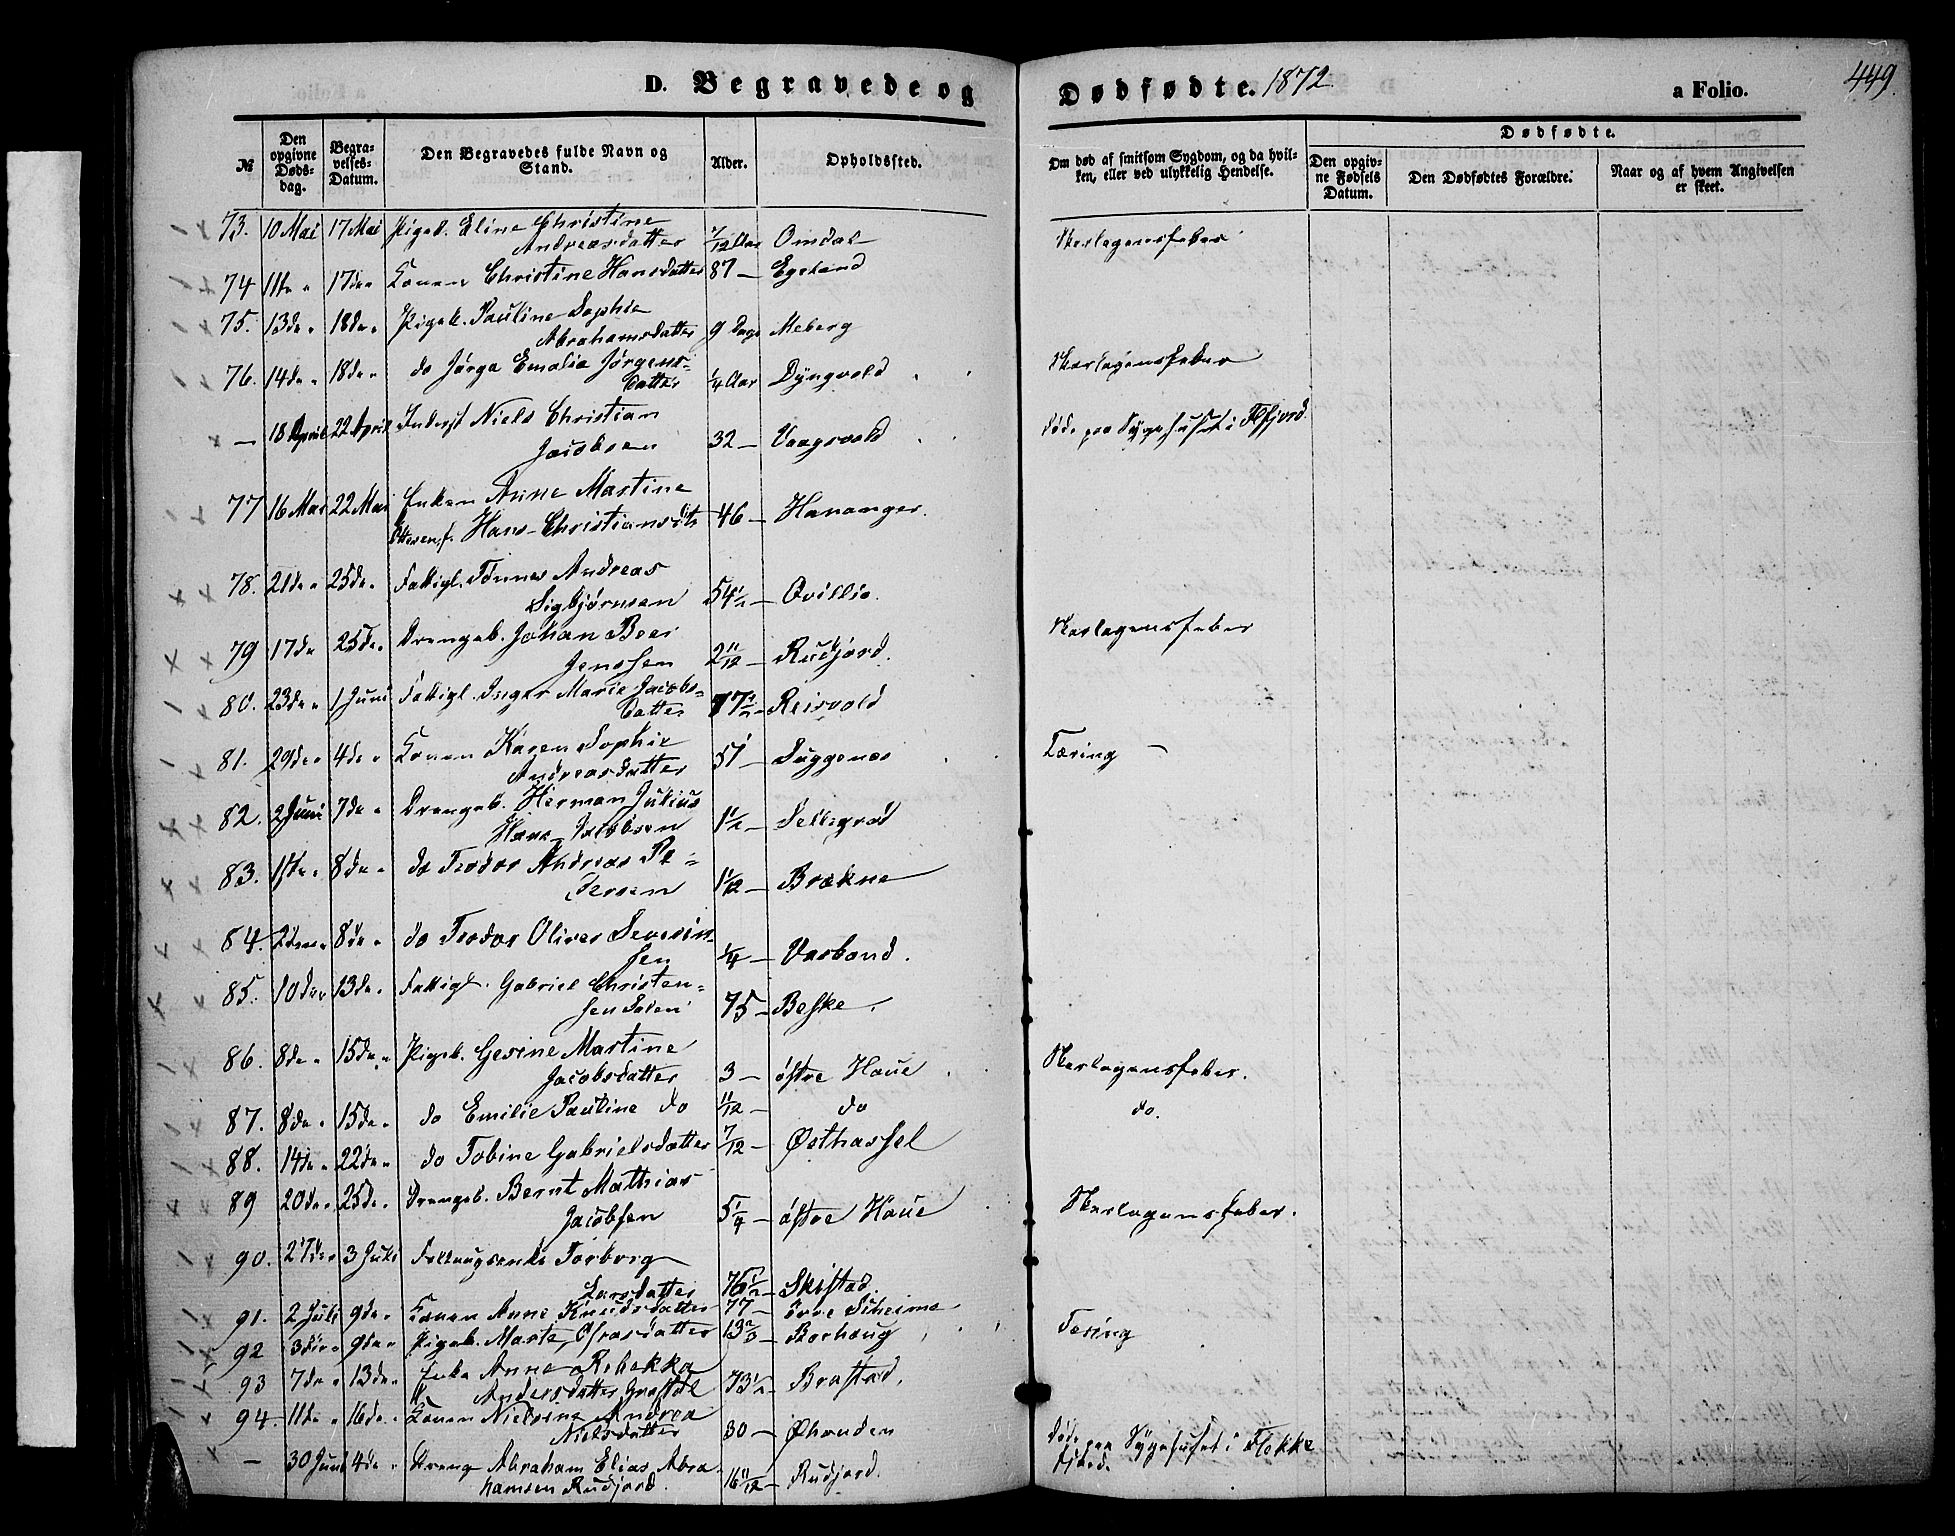 D. Begravede og Dødfødte. 1872 a Folio. 449.
№
Den opgivne Døds-dag.
Begra-velses-Datum.
Den Begravedes fulde Navn og Stand.
Alder.
Opholdssted.
Om død af smitsom Sygdom, og da hvil-ken, eller ved ulykkelig Hendelse.
Dødfødte.
Den opgiv-ne Fødsels Datum.
Den Dødfødtes Forældre.
Naar og af hvem Angivelsen er skeet.
73. 10 Mai 17 Mai Pigeb. Eline Christine
Andreasdatter 7/12 Aar Omdal Skarlagensfeber
74 11te " 17de " Konen Christine Hansdatter 87 – Egeland
75. 13de " 18de " Pigeb. Pauline Sophie
Abrahamsdatter 9 Dage Meberg
76. 14de " 18de " do Jørga Emalie Jørgens-
datter 1/4 Aar Dyngvold Skarlagensfeber
– 18 April 22 April Inderst Niels Christian
Jacobsen 32 – Vaagsvold Død paa Sygehuset i Flfjord
77 16 Mai 22 Mai Enken Anne Martine
Hans-Christiansdtr 46 – Hananger.
78. 21de " 25de " Fattigl. Tønnes Andreas
Sigbjørnsen 54 1/2 – Ovillie.
79 17de 25de " Drengeb. Johan Beer
Jenssen 2 11/12 – Rudjord. Skarlagensfeber
80. 23de " 1 Juni Fattigl. Inger Marie Jacobs-
datter 77 1/2 – Reisvold
81. 29de " 4de " Konen Karen Sophie
Andreasdatter 51 – Duggenæs Tæring –
82. 2 Juni 7de " Drengeb. Herman Julius
Hans Jacobsen 1 1/2 – Sellegrod
83. 1ste " 8de " do Teodor Andreas Pe-
tersen 1 1/12 – Brækne
84. 2den " 8de " do Teodor Oliver Severin-
sen 1/4 – Varbond.
85. 10de " 13de " Fattigl. Gabriel Christen-
sen 75 – Beske.
86. 8de " 15de " Pigeb. Gesine Martine
Jacobsdatter 3 – østre Haue Skarlagensfeber.
87. 8de " 15de " do Emilie Pauline do 11/12 – do do.
88. 14de " 22de " do Tobine Gabrielsdatter 7/12 – Østhassel
89 20de " 25de " Drengeb. Bernt Mathias
Jacobsen 5 1/4 – østre Haue Skarlagensfeber.
90. 27de " 3 Juli Føderaadsenke Torborg
Larsdatter 76 1/2 – Skistad.
91. 2 Juli 9de " Konen Anne Knudsdatter 77 – øvre
92 3die " 9de " Pigeb. Marte Osmsdatter 13 2/3 – Borhaug Tæring
93 7de " 13de " Enke Anne Rebekka
Andersdatter 73 1/2 – Brastad.
94. 11te " 16de " Konen Nielsine Andrea
Nielsdatter 30 – Øhanden
– 30 Juni 4de " Dreng Abraham Elias Abra-
hamsen Rudjord. 16 11/12 – Rudjord. Død paa Sygehuset i Flekke
fjord.